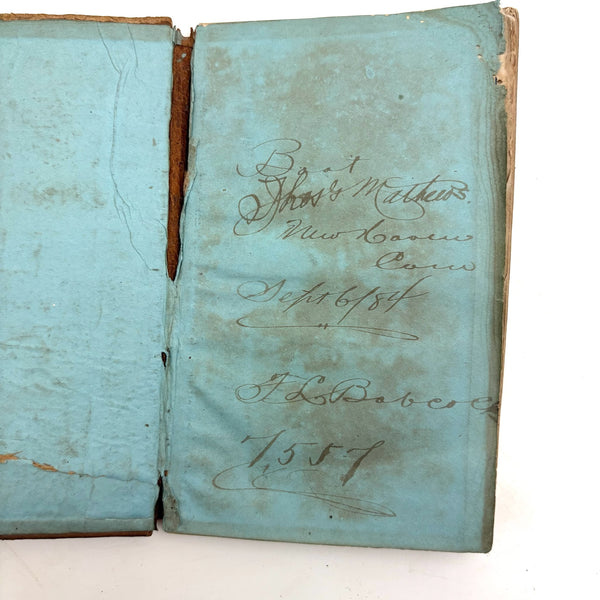 Boat
Thos's Mathews.
New Haven
Conn
Sept 6/84
"
F L Babcock
7,557